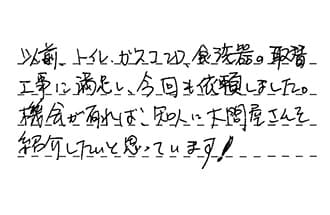 以前、トイレ、ガスコンロ、食洗器の取替
工事に満足し、今回も依頼しました。
機会が有れば、知人に大問屋さんを
紹介したいと思っています!